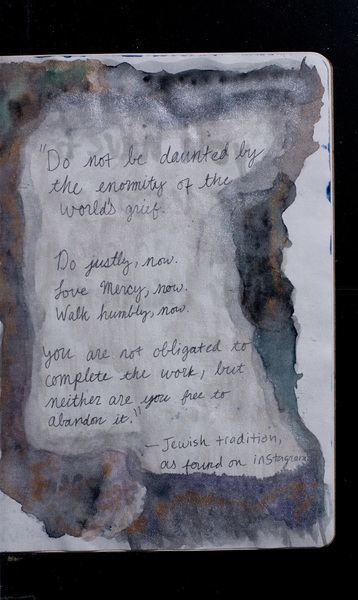 "Do not be daunted by
the enormity of the
world's grief.
Do justly, now.
Love Mercy, now.
Walk humbly, now.
you are not obligated to
complete the work, but
neither are you free to
abandon it."
— Jewish tradition,
as found on instagram